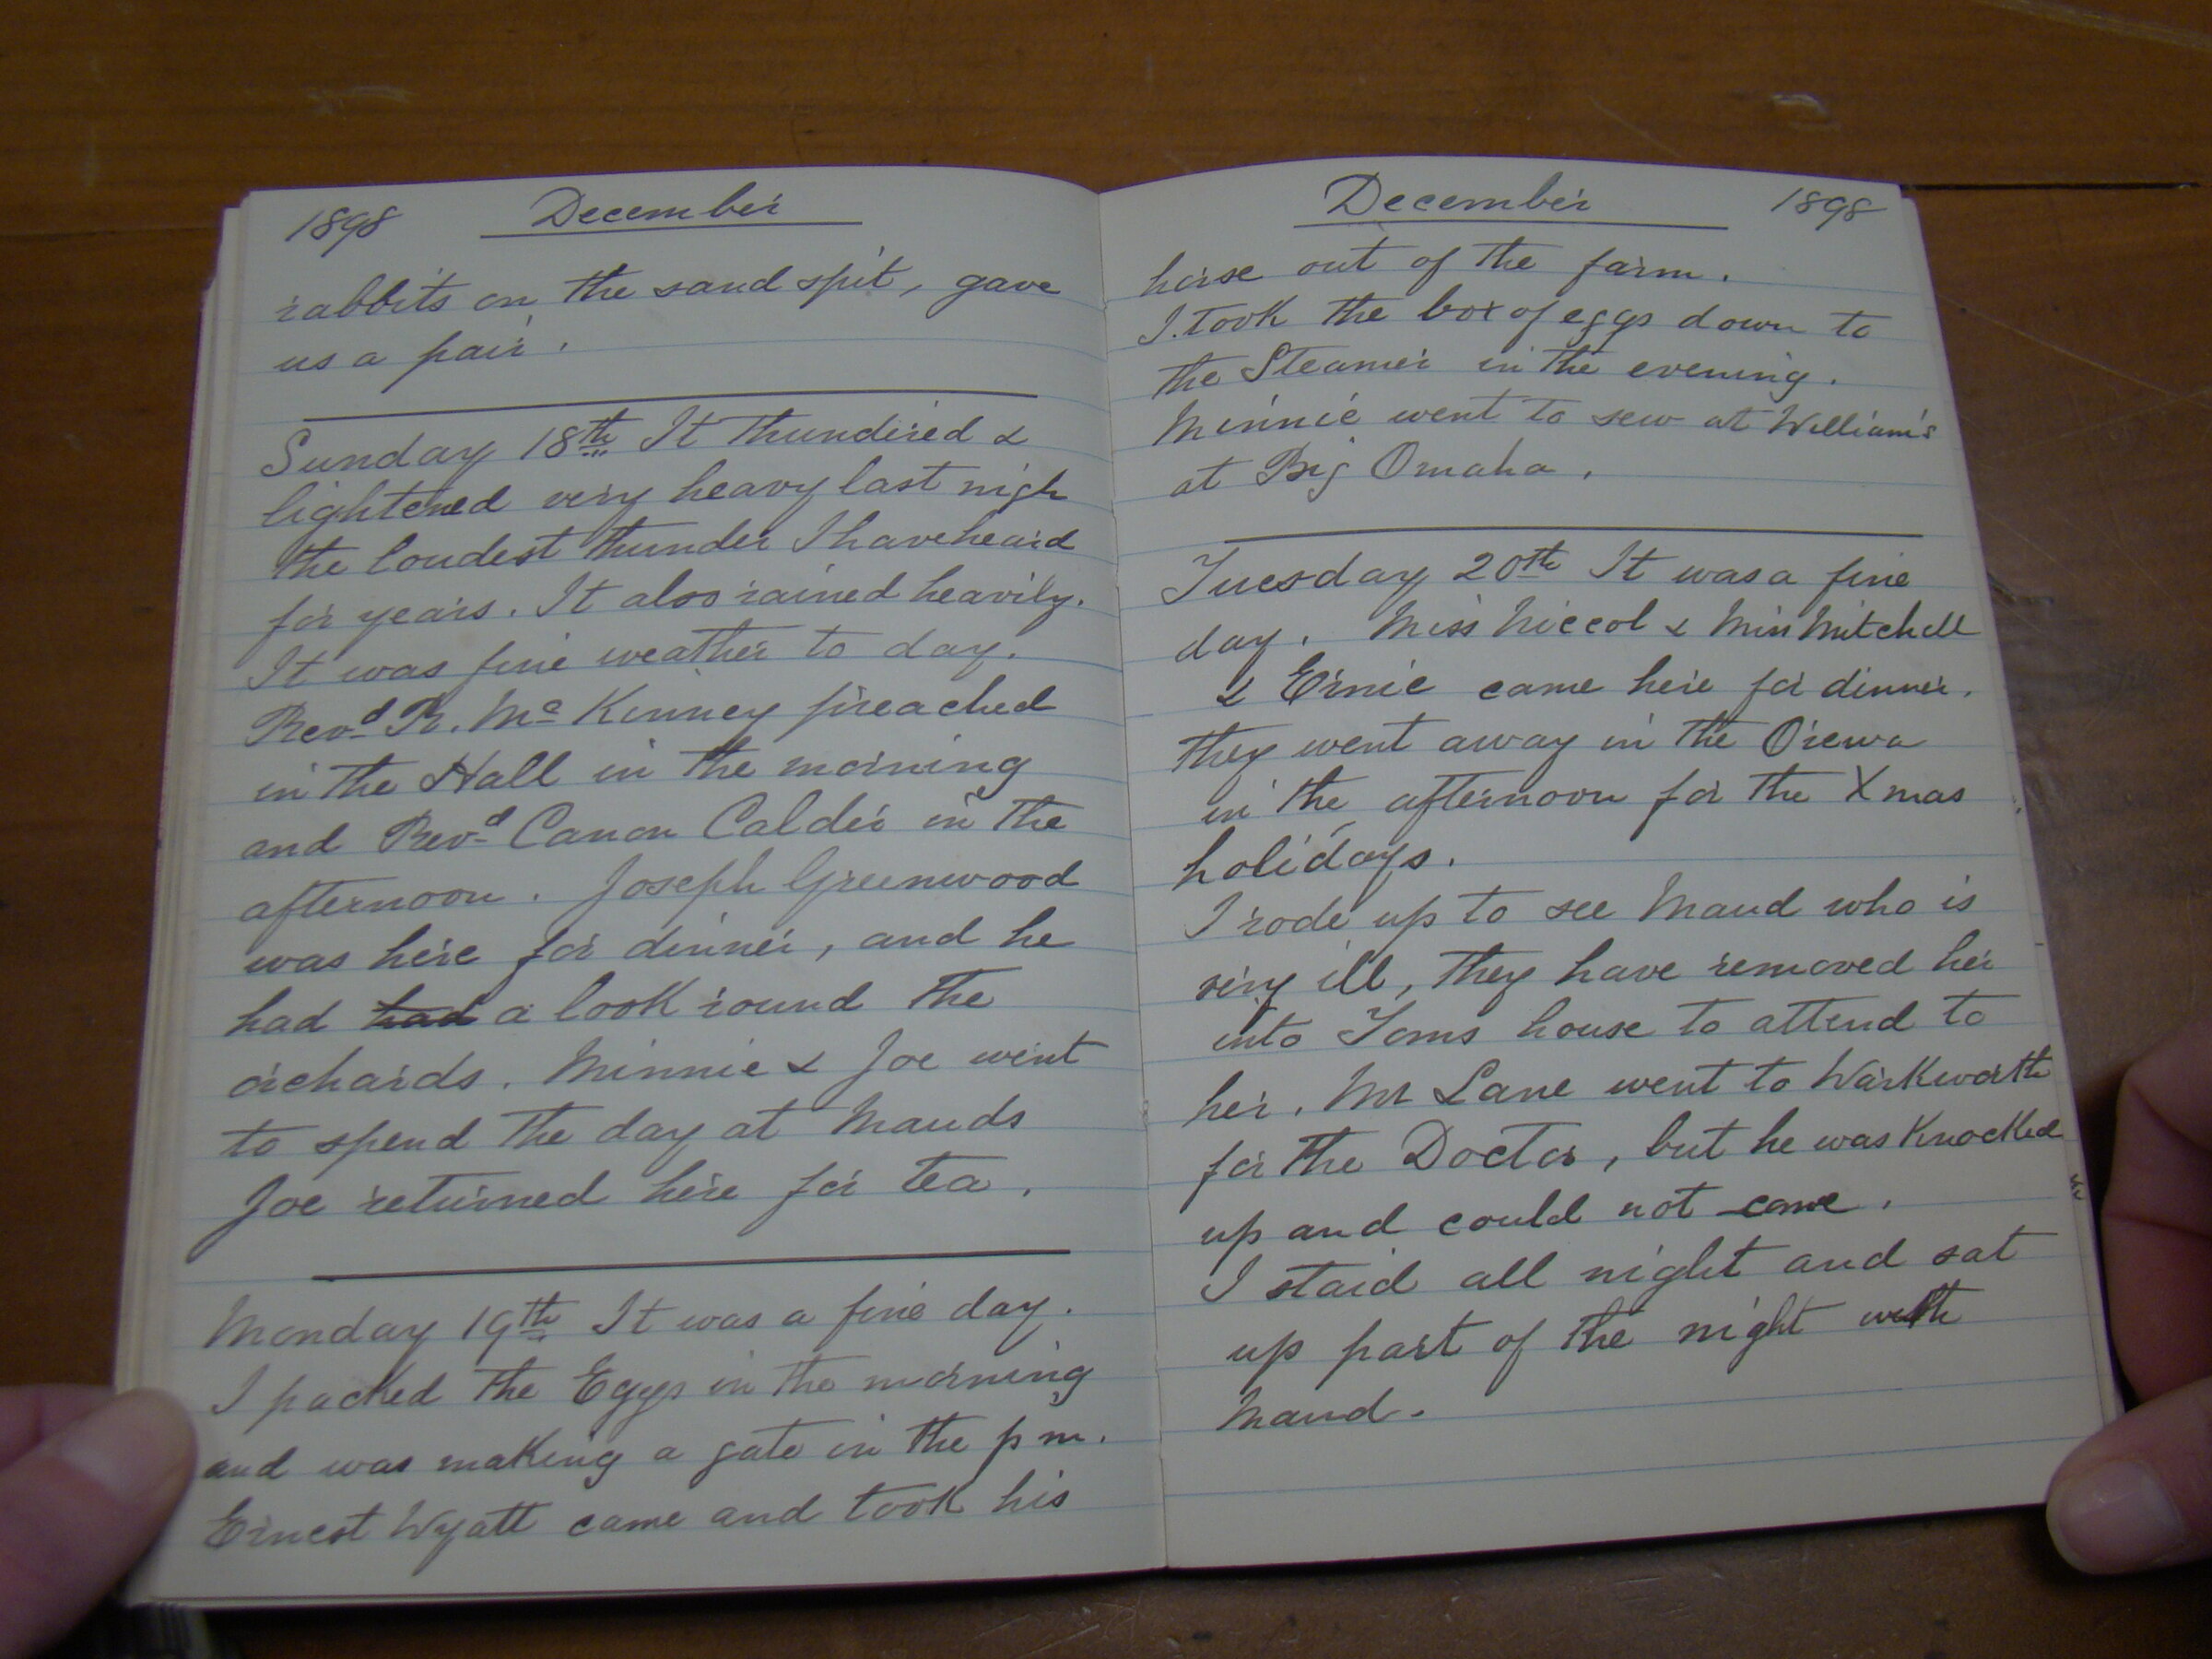 1898 December
rabbits on the sand spit, gave
us a pair.
Sunday 18th It thundered &
lightened very heavy last nigh
the loudest thunder I have heard
for years. It also rained heavily.
It was fine weather to day.
Revd R. Mc Kinney preached
in the Hall in the morning
and Revd Canon Calder in the
afternoon. Joseph Greenwood
was here for dinner, and he
had had a look round the
orchards. Minnie & Joe went
to spend the day at Mauds
Joe returned here for tea.
Monday 19th It was a fine day.
I packed the Eggs in the morning
and was making a gate in the p m.
Ernest Wyatt came and took his
December 1898
horse out of the farm.
I took the box of eggs down to
the Steamer in the evening.
Minnie went to sew at William's
at Big Omaha.
Tuesday 20th It was a fine
day. Miss Niccol & Miss Mitchell
& Ernie came here for dinner.
they went away in the Orewa
in the afternoon for the Xmas
holidays.
I rode up to see Maud who is
very ill, they have removed her
into Toms house to attend to
her. Mr Lane went to Warkworth
for the Doctor, but he was Knocked
up and could not come.
I staid all night and sat
up part of the night with
Maud.